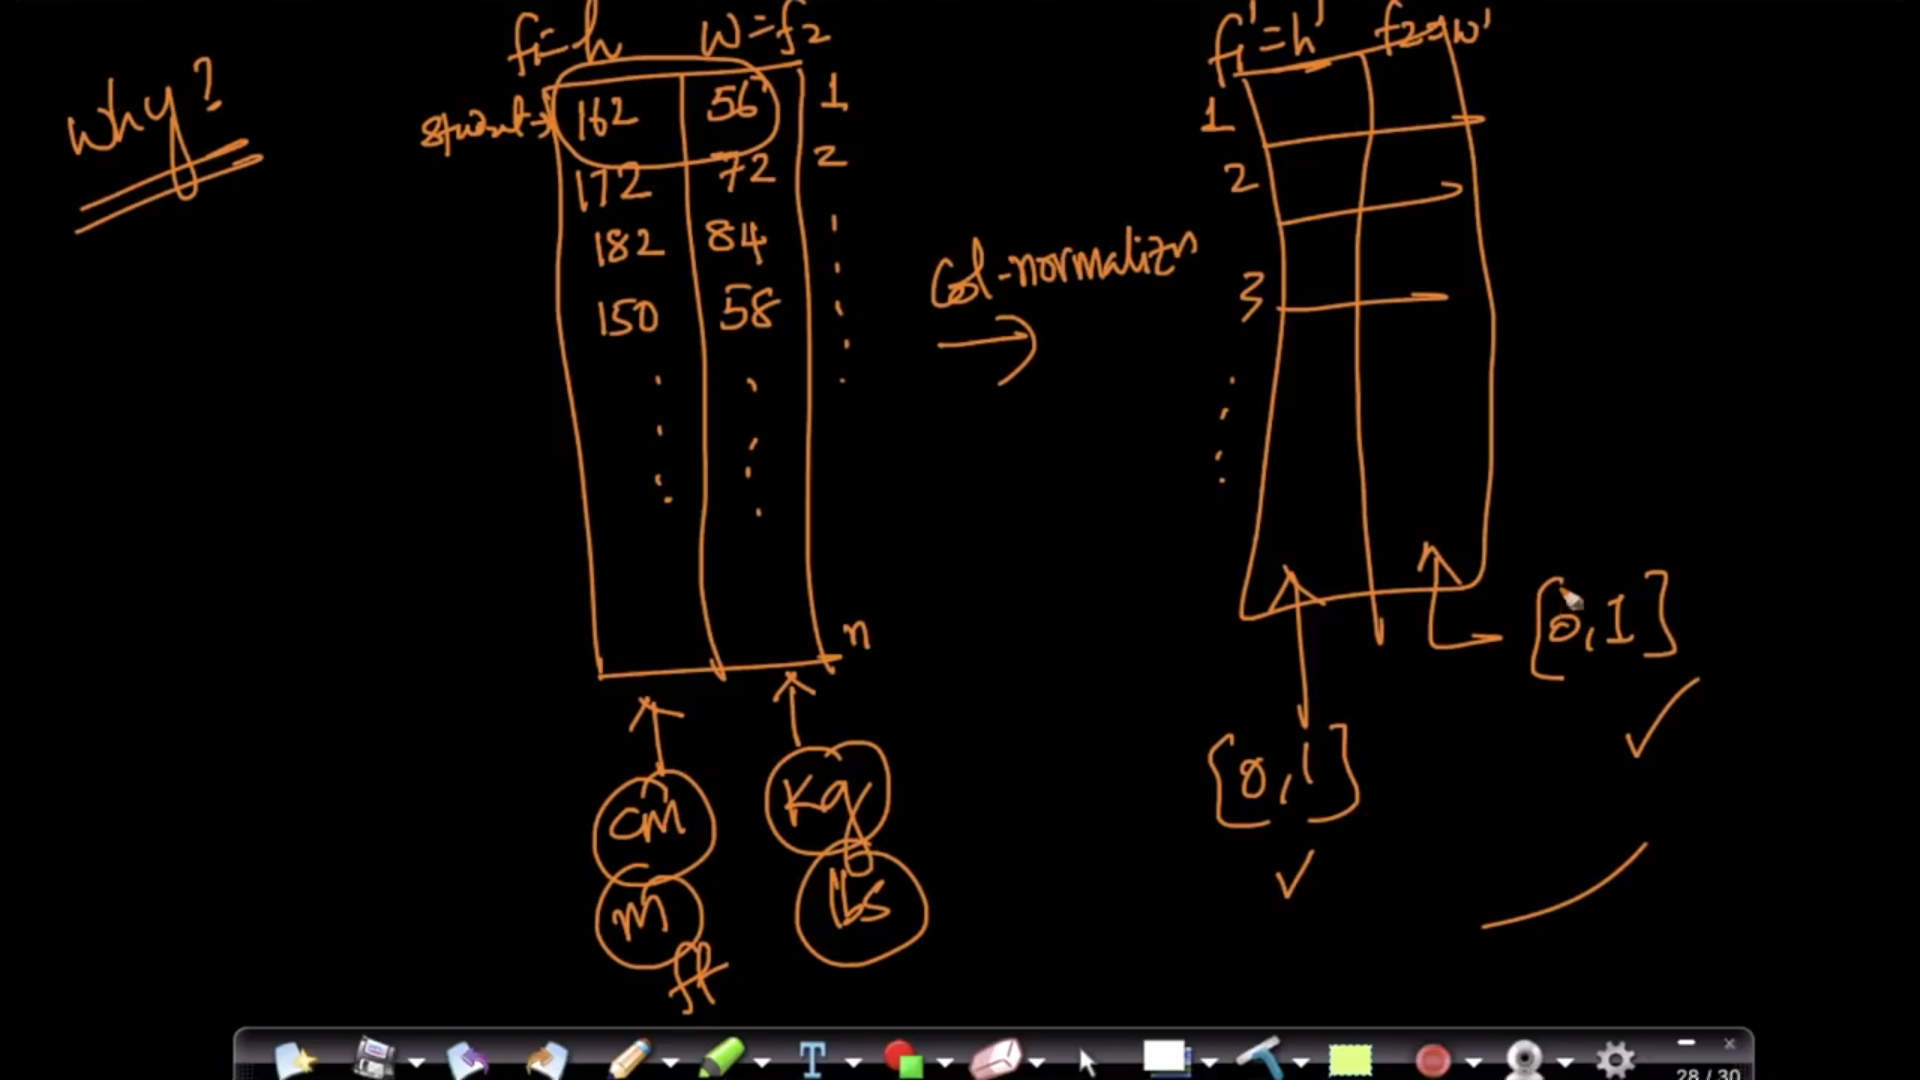 why?
f1=h w=f2
student→ 162 56 1
172 72 2
182 84
150 58
n
cm kg
m lbs
ft
Col-normalizn
f1'=h' f2=w'
1
2
3
[0,1]
[0,1]
T
28 / 30